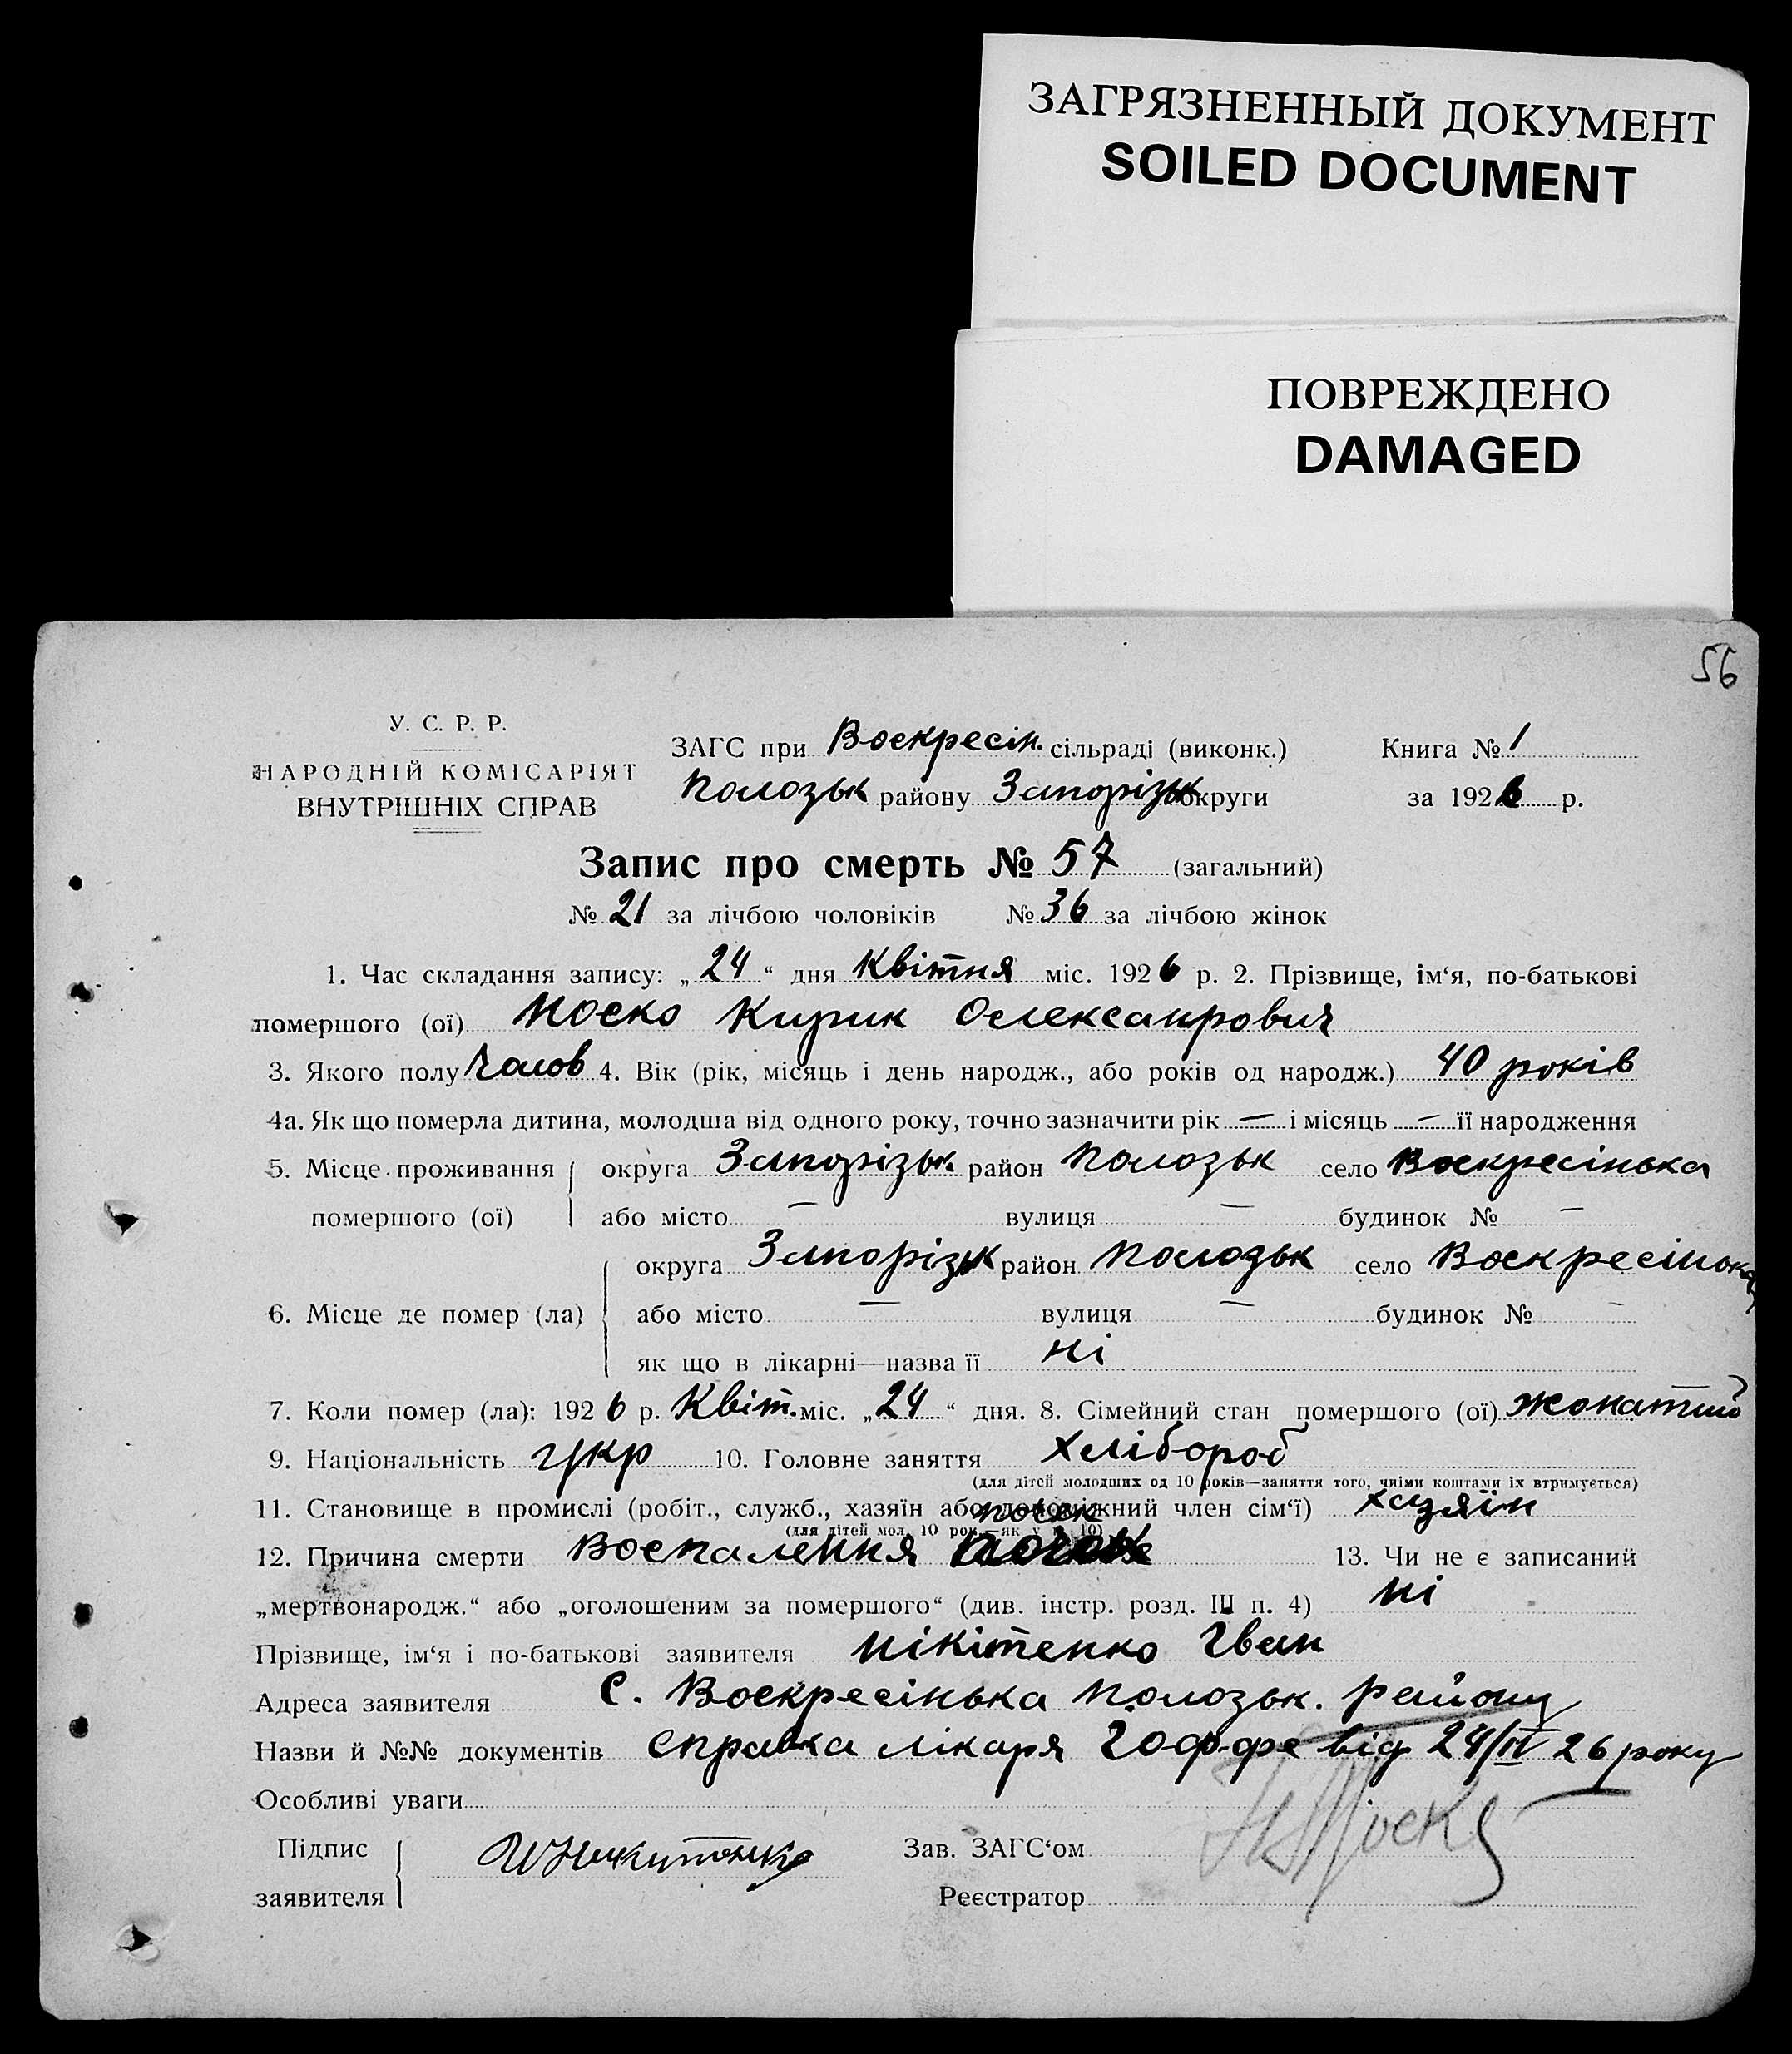 ЗАГРЯЗНЕННЫЙ ДОКУМЕНТ
SOILED DOCUMENT
ПОВРЕЖДЕНО
DAMAGED
56
У. С. Р. Р.
НАРОДНІЙ КОМІСАРІЯТ
ВНУТРІШНІХ СПРАВ
ЗАГС при Воскресін. сільраді (виконк.) Книга № 1
Полозьк району Запорізьк округи за 1926 р.
Запис про смерть № 57 (загальний)
№ 21 за лічбою чоловіків № 36 за лічбою жінок
1. Час складання запису: „ 24 “ дня Квітня міс. 1926 р. 2. Прізвище, ім‘я, по-батькові
помершого (ої) Носко Кирик Олександрович
3. Якого полу Чолов 4. Вік (рік, місяць і день народж., або років од народж.) 40 років
4а. Як що померла дитина, молодша від одного року, точно зазначити рік — і місяць — її народження
5. Місце проживання округа Запорізьк. район Полозьк село Воскресінька
помершого (ої) або місто — вулиця — будинок № —
округа Запорізьк район Полозьк село Воскресінька
6. Місце де помер (ла) або місто — вулиця — будинок № —
як що в лікарні—назва її ні
7. Коли помер (ла): 1926 р. Квіт. міс. „ 24 “ дня. 8. Сімейний стан помершого (ої) жонатий
9. Національність укр 10. Головне заняття хлібороб
(для дітей молодших од 10 років—заняття того, чиїми коштами їх втримується)
11. Становище в промислі (робіт., служб., хазяїн або допоміжний член сім‘ї) хазяїн
(для дітей мол. 10 рок.—як у п. 10)
почек
12. Причина смерти Воспалення 13. Чи не є записаний
„мертвонародж.“ або „оголошеним за помершого“ (див. інстр. розд. III п. 4) ні
Прізвище, ім‘я і по-батькові заявителя Нікітенко Іван
Адреса заявителя С. Воскресінька Полозьк. району
Назви й №№ документів справка лікаря Гоффе від 24/IV 26 року
Особливі уваги
Підпис
заявителя И Никитенко
Зав. ЗАГС‘ом
Реєстратор